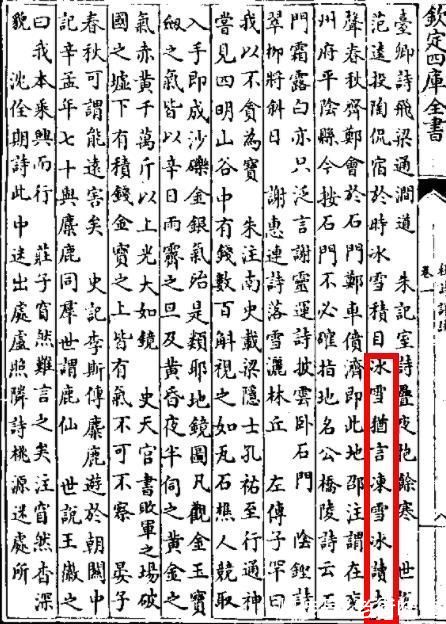 欽定四庫全書
卷一
臺卿詩飛梁通澗道　朱記室詩疊夜抱餘寒　世說
范逵投陶侃宿於時冰雪積日冰雪猶言凍雪冰讀去
聲春秋齊鄭會於石門鄭車僨濟即此地邵注謂在兗
州府平陰縣今按石門不必確指地名公橋陵詩云石
門霜露白亦只泛言謝靈運詩披雲卧石門　陰鏗詩
翠柳將斜日　謝惠連詩落雪灑林丘　左傳子罕曰
我以不貪為寶　朱注南史載梁隱士孔祐至行通神
嘗見四明山谷中有錢數百斛視之如瓦石樵人競取
入手即成沙礫金銀氣殆是類耶地鏡圖凡觀金玉寶
劍之氣皆以辛日雨霽之旦及黃昏夜半伺之黃金之
氣赤黃千萬斤以上光大如鏡　史天官書敗軍之場破
國之墟下有積錢金寶之上皆有氣不可不察　晏子
春秋可謂能遠害矣　史記李斯傳麋鹿遊於朝關中
記辛孟年七十與麋鹿同羣世謂鹿仙　世說王徽之
曰我本乘興而行　莊子窅然難言之矣注窅然杳深
貌　沈佺期詩此中迷出處盧照隣詩桃源迷處所